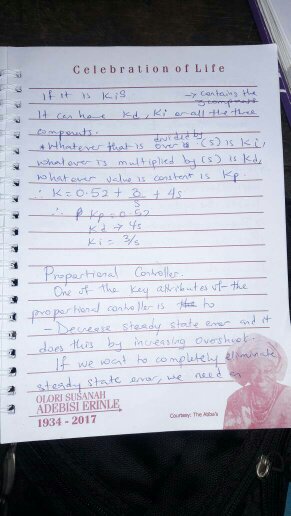 Celebration of Life
If it is Kig → containing the
3 components
It can have Kd, Ki or all the three
components.
* Whatever that is divided by over (s) is Ki,
whatever is multiplied by (s) is Kd,
whatever value is constant is Kp.
∴ K = 0.52 + 3/s + 4s
∴ Kp = 0.52
Kd → 4s
Ki = 3/s
Proportional Controller.
One of the key attributes of the
proportional controller is to
- Decrease steady state error and it
does this by increasing overshoot.
If we want to completely eliminate
steady state error, we need
OLORI SUSANAH
ADEBISI ERINLE
1934 - 2017
Courtesy: The Abba's